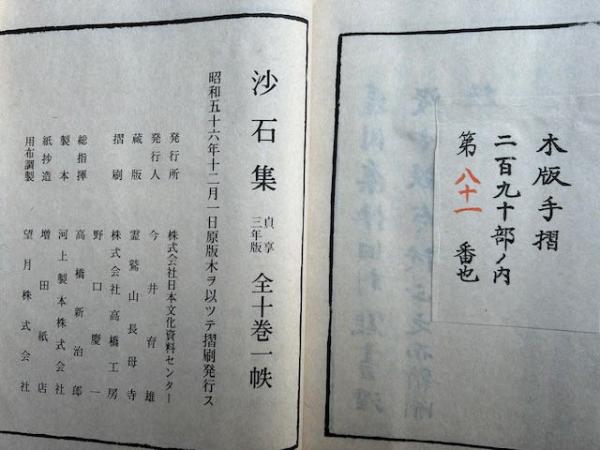 木版手摺
二百九十部ノ内
第 八十一 番也
沙石集 貞享三年版 全十巻一帙
昭和五十六年十二月一日原版木ヲ以ツテ摺刷発行ス
発行所 株式会社日本文化資料センター
発行人 今井育雄
蔵版 霊鷲山長母寺
摺刷 株式会社高橋工房
野口慶一
総指揮 高橋新治郎
製本 河上製本株式会社
紙抄造 増田紙店
用布調製 望月株式会社